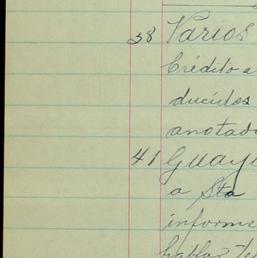 38 Varios
Crédito a
ducidos
anotad
41 Guay
a Sta
informe
hablar